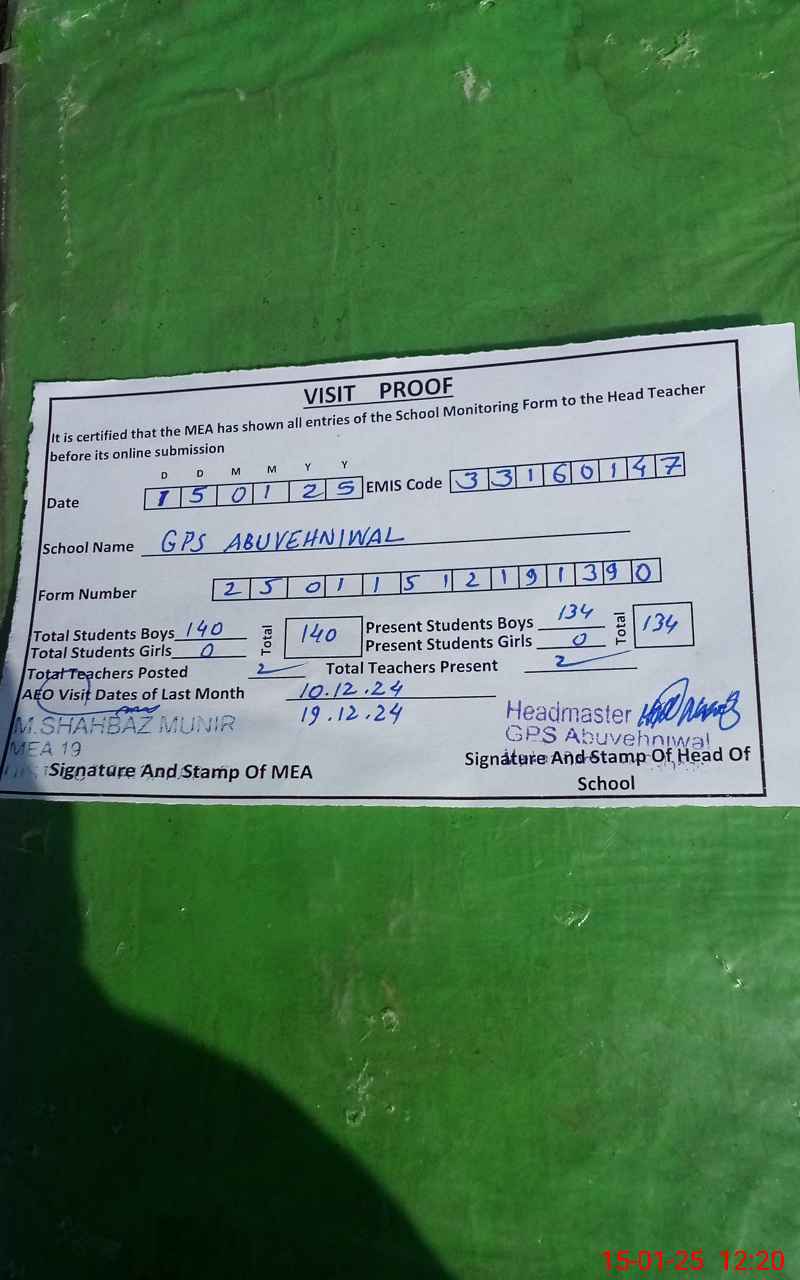 VISIT PROOF
It is certified that the MEA has shown all entries of the School Monitoring Form to the Head Teacher
before its online submission
D D M M Y Y
Date 1 5 0 1 2 5 EMIS Code 3 3 1 6 0 1 4 7
School Name GPS ABUVEHNIWAL
Form Number 2 5 0 1 1 5 1 2 1 9 1 3 9 0
Total Students Boys 140 Total 140 Present Students Boys 134 Total 134
Total Students Girls 0 Present Students Girls 0
Total Teachers Posted 2 Total Teachers Present 2
AEO Visit Dates of Last Month 10.12.24
19.12.24
M.SHAHBAZ MUNIR
MEA 19
Headmaster
GPS Abuvehniwal
Signature And Stamp Of MEA
Signature And Stamp Of Head Of
School
15-01-25 12:20